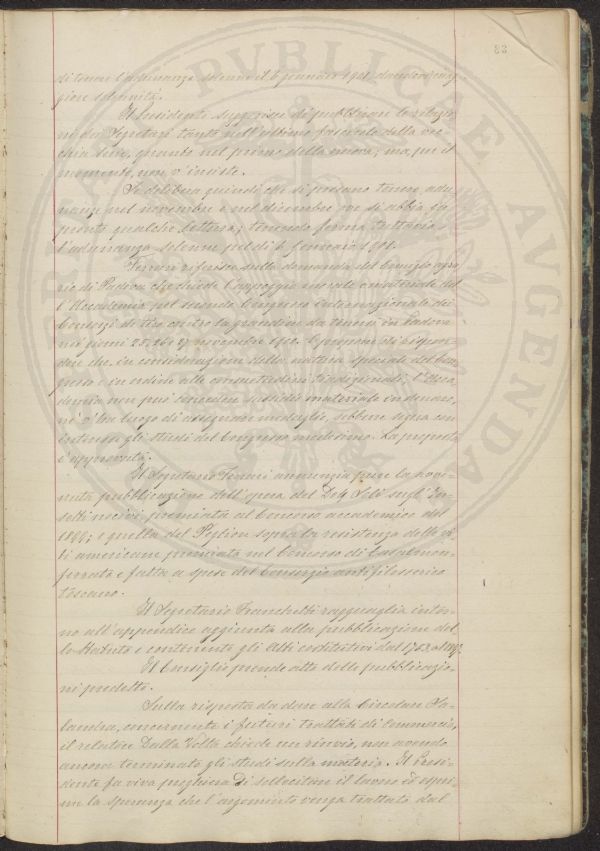 83
di tenere l'adunanza solenne il 6 gennaio 1901, dandone mag-
giore solennità.
Il Presidente suggerisce di pubblicare le relazio-
ni dei Segretari tanto nell'ultimo fascicolo della vec-
chia serie, quanto nel primo della nuova; ma, per il
momento, non v'insiste.
Si delibera quindi che si possano tenere adu-
nanze nel novembre e nel dicembre ove si abbia in
pronto qualche lettura; tenendo ferma tuttavia
l'adunanza solenne pel dì 6 gennaio 1901.
Ferrari riferisce sulla domanda del Comizio agra-
rio di Padova che chiede l'appoggio morale e materiale del-
l'Accademia pel secondo Congresso internazionale dei
Consorzi di tiro contro la grandine da tenersi in Padova
nei giorni 25, 26 e 27 novembre 1900. E propone di rispon-
dere che in considerazione della natura speciale del Con-
gresso e in ordine alle consuetudini tradizionali, l'Acca-
demia non può concedere sussidio materiale in denaro,
nè v'ha luogo di assegnare medaglie, sebbene segua con
interesse gli studi del Congresso medesimo. La proposta
è approvata.
Il Segretario Ferrari annunzia pure la avve-
nuta pubblicazione dell'opera del Dott. Leli sugl'In-
setti nocivi, premiata al Concorso accademico del
e quella del Peglion sopra la resistenza delle vi-
ti americane premiata nel Concorso di Casalmon-
ferrato e fatta a spese del Consorzio antifilosserico
toscano.
Il Segretario Franchetti ragguaglia intor-
no all'appendice aggiunta alla pubblicazione del-
lo Statuto e contenente gli Atti costitutivi dal 1753 al
Il Consiglio prende atto delle pubblicazio-
ni predette.
Sulla risposta da dare alla Circolare Sa-
landra, concernente i futuri trattati di Commercio,
il relatore Dalla Volta chiede un rinvio, non avendo
ancora terminato gli studi sulla materia. Il Presi-
dente fa viva preghiera di sollecitare il lavoro ed espri-
me la speranza che l'argomento venga trattato dal